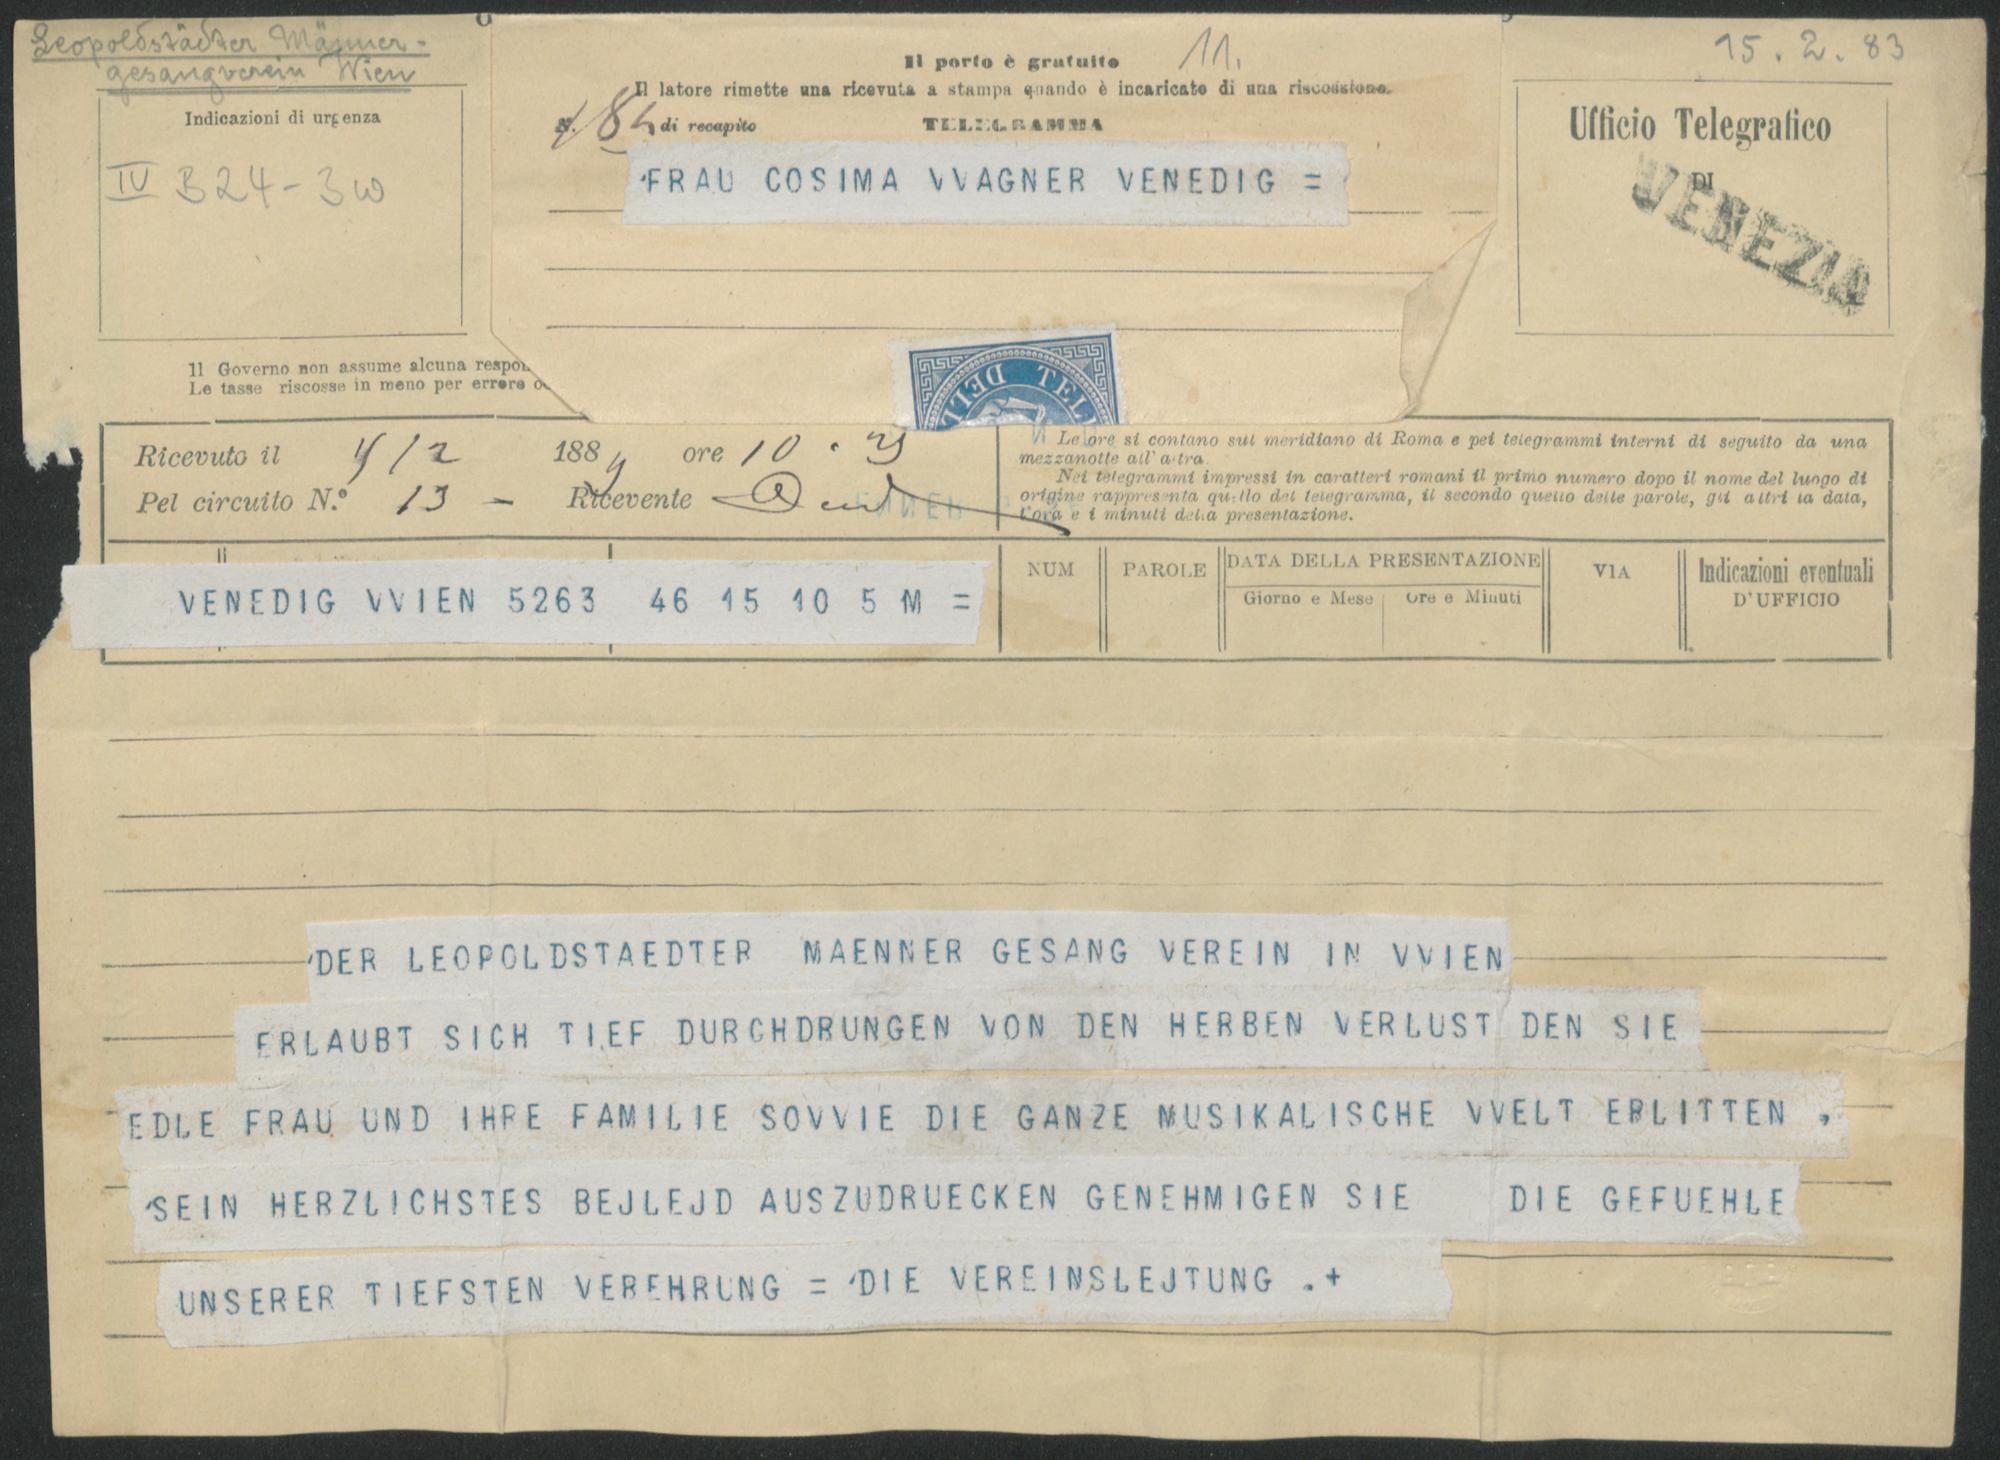 Leopoldstädter Männer-
gesangverein Wien
11.
15.2.83
Il porto è gratuito
Il latore rimette una ricevuta a stampa quando è incaricato di una riscossione.
Indicazioni di urgenza
N. di recapito
TELEGRAMMA
Ufficio Telegrafico
DI
VENEZIA
IV B24-3w
FRAU COSIMA VVAGNER VENEDIG =
Il Governo non assume alcuna respon
Le tasse riscosse in meno per errore o
TEL
DELL
Ricevuto il 188 ore 10.
Pel circuito N.° 13 - Ricevente
Le ore si contano sul meridiano di Roma e pei telegrammi interni di seguito da una
mezzanotte all'altra.
Nei telegrammi impressi in caratteri romani il primo numero dopo il nome del luogo di
origine rappresenta quello del telegramma, il secondo quello delle parole, gli altri la data,
l'ora e i minuti della presentazione.
NUM
PAROLE
DATA DELLA PRESENTAZIONE
Giorno e Mese
Ore e Minuti
VIA
Indicazioni eventuali
D'UFFICIO
VENEDIG VVIEN 5263 46 15 10 5 M =
DER LEOPOLDSTAEDTER MAENNER GESANG VEREIN IN VVIEN
ERLAUBT SICH TIEF DURCHDRUNGEN VON DEN HERBEN VERLUST DEN SIE
EDLE FRAU UND IHRE FAMILIE SOVVIE DIE GANZE MUSIKALISCHE VVELT ERLITTEN ,
SEIN HERZLICHSTES BEJLEJD AUSZUDRUECKEN GENEHMIGEN SIE DIE GEFUEHLE
UNSERER TIEFSTEN VEREHRUNG = DIE VEREINSLEJTUNG .+